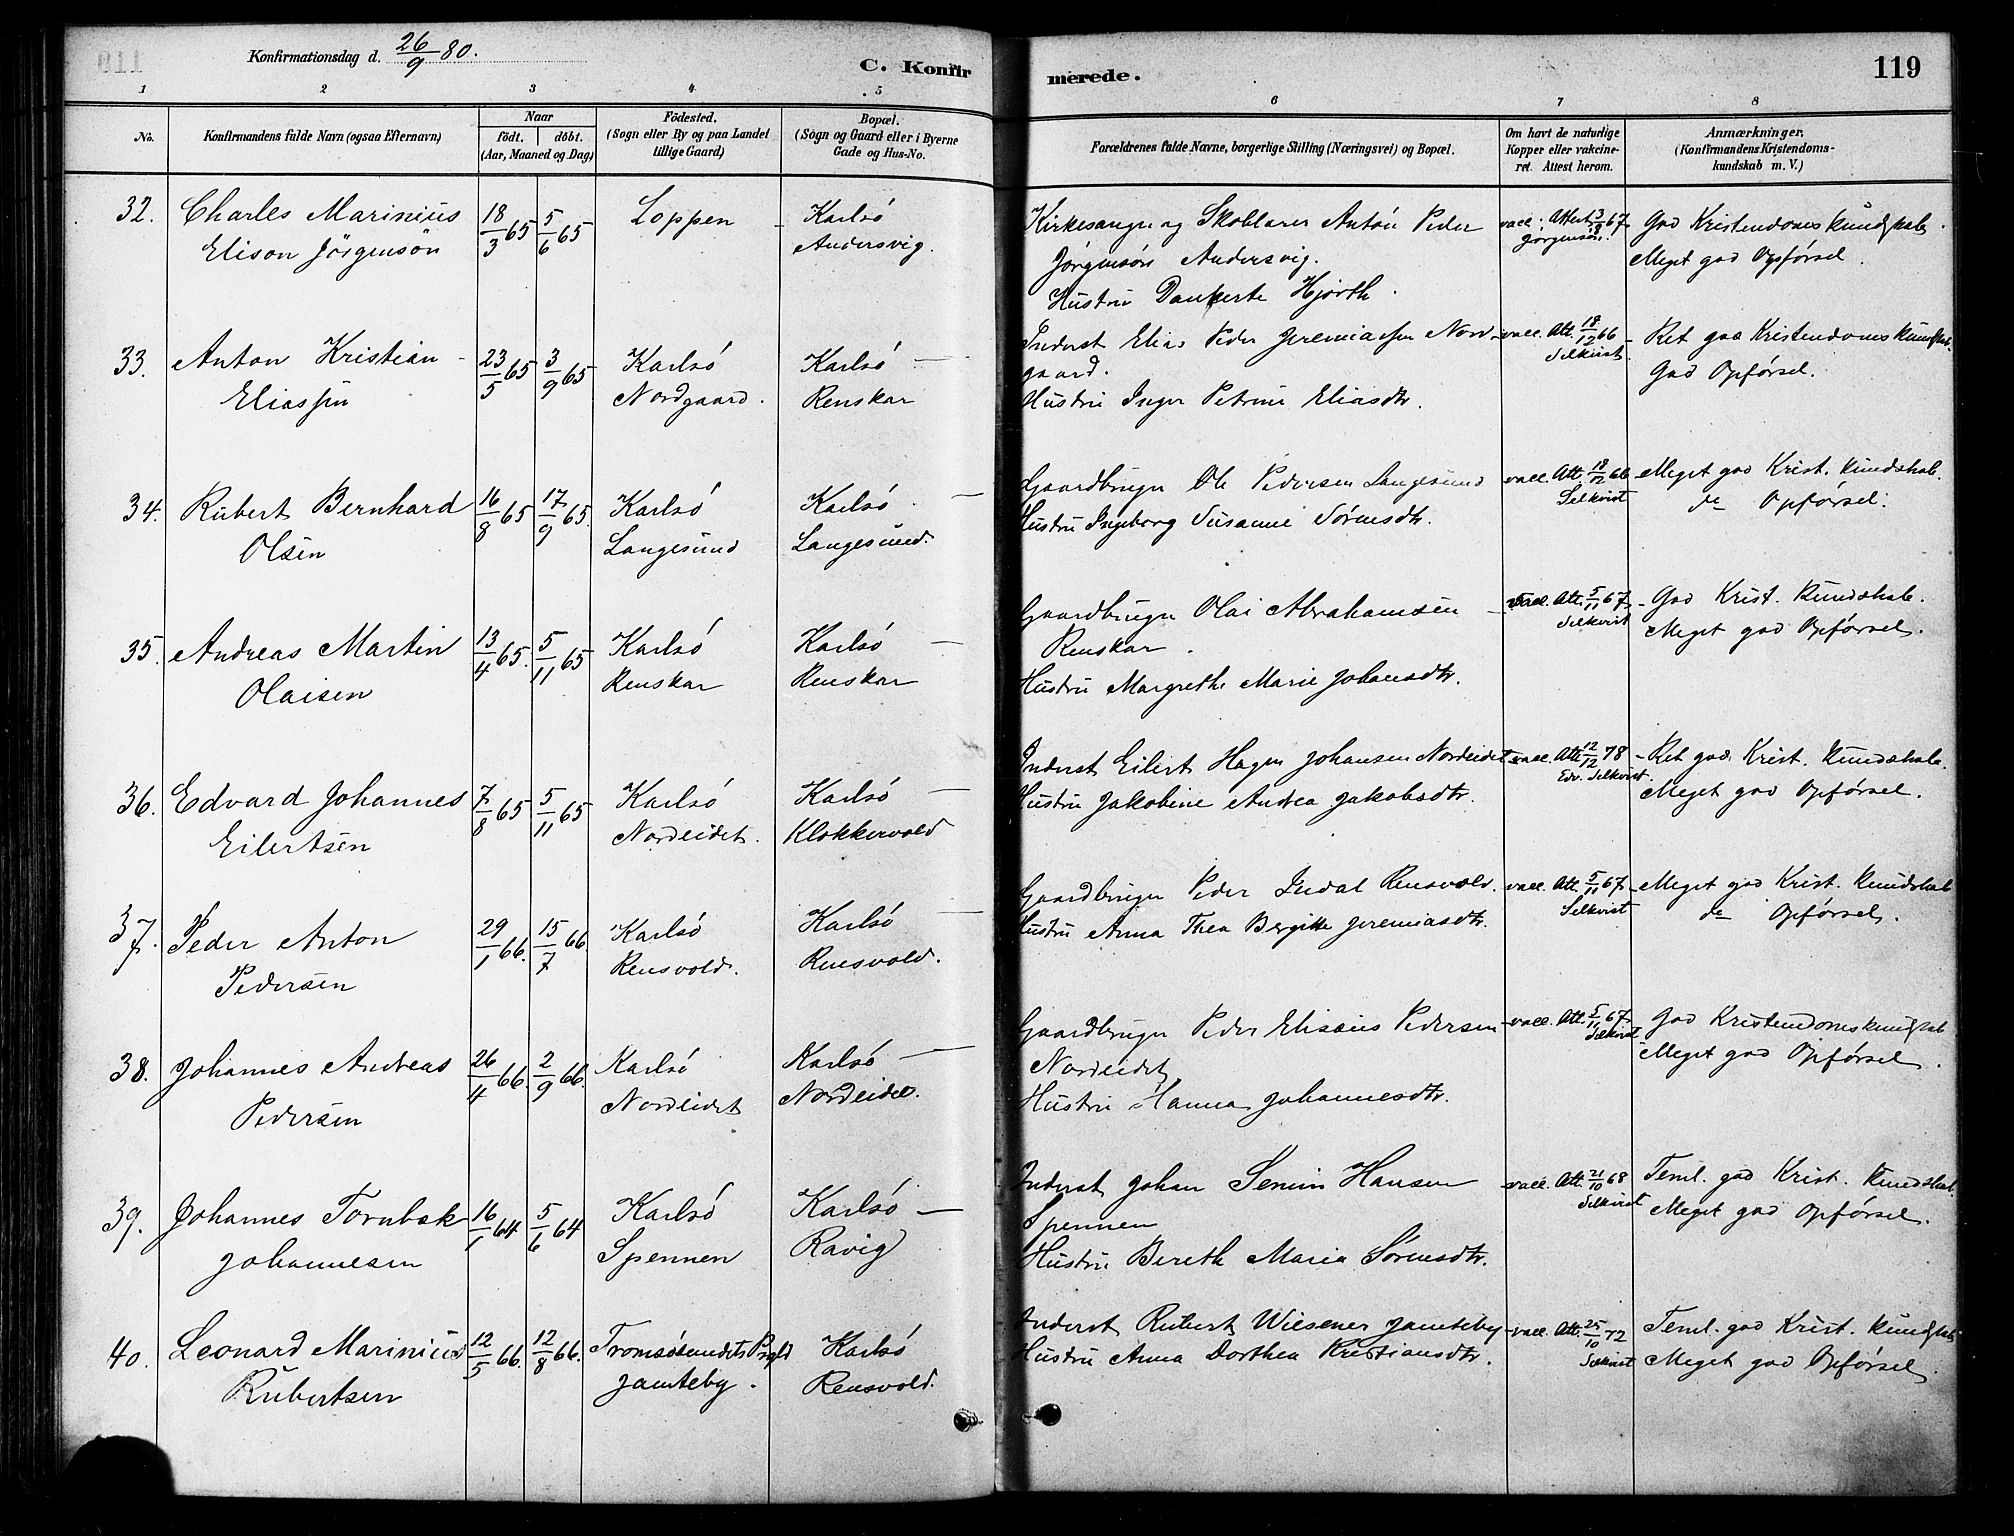 Konfirmationsdag d. 26/9 80.
C. Konfirmerede.
119
1 2 3 4 5 6 7 8
No.
Konfirmandens fulde Navn (ogsaa Efternavn)
Naar
födt. döbt.
(Aar, Maaned og Dag)
Födested.
(Sogn eller By og paa Landet
tillige Gaard)
Bopæl.
(Sogn og Gaard eller i Byerne
Gade og Hus-No.
Forældrenes fulde Navne, borgerlige Stilling (Næringsvei) og Bopæl.
Om havt de naturlige
Kopper eller vakcine-
ret. Attest herom.
Anmærkninger.
(Konfirmandens Kristendoms-
kundskab m. V.)
32. Charles Marinius 18/3 65 5/6 65 Loppen - Karlsö Kirkesanger og Skolelærer Anton Peder vacc. Attest 3/8 67. God Kristendomskundskab.
Elison Jörgensön Andersvig. Jörgensön Andersvig. Jörgensön. Meget god Opförsel.
Hustru Dankerte Hjorth.
33. Anton Kristian 23/5 65 3/9 65 Karlsö Karlsö Inderst Elias Peder Jeremiassen Nord- vacc. Att. 18/12 66 Ret god Kristendomskundskab.
Eliassen Nordgaard. Renskar gaard. Selkvist God Opförsel.
Hustru Inger Petrine Eliasdtr.
34. Rubert Bernhard 16/8 65 17/9 65. Karlsö Karlsö Gaardbruger Ole Pedersen Langesund vacc. Att. 18/12 66 Meget god Krist. kundskab.
Olsen Langesund Langesund. Hustru Ingeborg Susanne Sörensdtr. Selkvist do Opförsel.
35. Andreas Martin 13/4 65. 5/11 65 Karlsö Karlsö Gaardbruger Olai Abrahamsen vacc. Att. 5/11 67. God Krist. kundskab.
Olaisen Renskar Renskar Renskar. Selkvist Meget god Opförsel.
Hustru Margrethe Marie Johansdtr.
36. Edvard Johannes 7/8 65 5/11 65 Karlsö Karlsö Inderst Eilert Hagen Johansen Nordeidet vacc. Att. 12/12 78 Ret god Krist. kundskab.
Eilertsen Nordeidet. Klokkervold Hustru Jakobine Andrea Jakobsdtr. Edv. Selkvist. Meget god Opförsel.
37. Peder Anton 29/1 66. 15/7 66 Karlsö Karlsö Gaardbruger Peder Indal Rensvold. vacc. Att. 5/11 67. Meget god Krist. kundskab
Pedersen Rensvold. Rensvold. Hustru Anna Thea Bergitte Jeremiasdtr. Selkvist do Opförsel.
38. Johannes Andreas 26/4 66. 2/9 66. Karlsö Karlsö Gaardbruger Peder Elisæus Pedersen vacc. Att. 5/11 67. God Kristendomskundskab
Pedersen Nordeidet Nordeidet. Nordeidet Selkvist Meget god Opförsel.
Hustru Hanna Johannesdtr.
39. Johannes Tornbæk 16/1 64 5/6 64 Karlsö Karlsö Inderst Johan Hansen vacc. Att. 21/10 68 Teml. god Krist. kundskab.
Johannesen Spennen Ravig Spennen Selkvist Meget god Opförsel.
Hustru Bereth Maria Sörensdtr.
40. Leonard Marinius 12/5 66. 12/8 66. Tromsösundets Prgld Karlsö Inderst Rubert Wiesener Jamteby vacc. Att. 25/10 72 Teml. god Krist. kundskab
Rubertsen Jamteby. Rensvold. Hustru Anna Dorthea Kristiansdtr. Selkvist Meget god Opförsel.